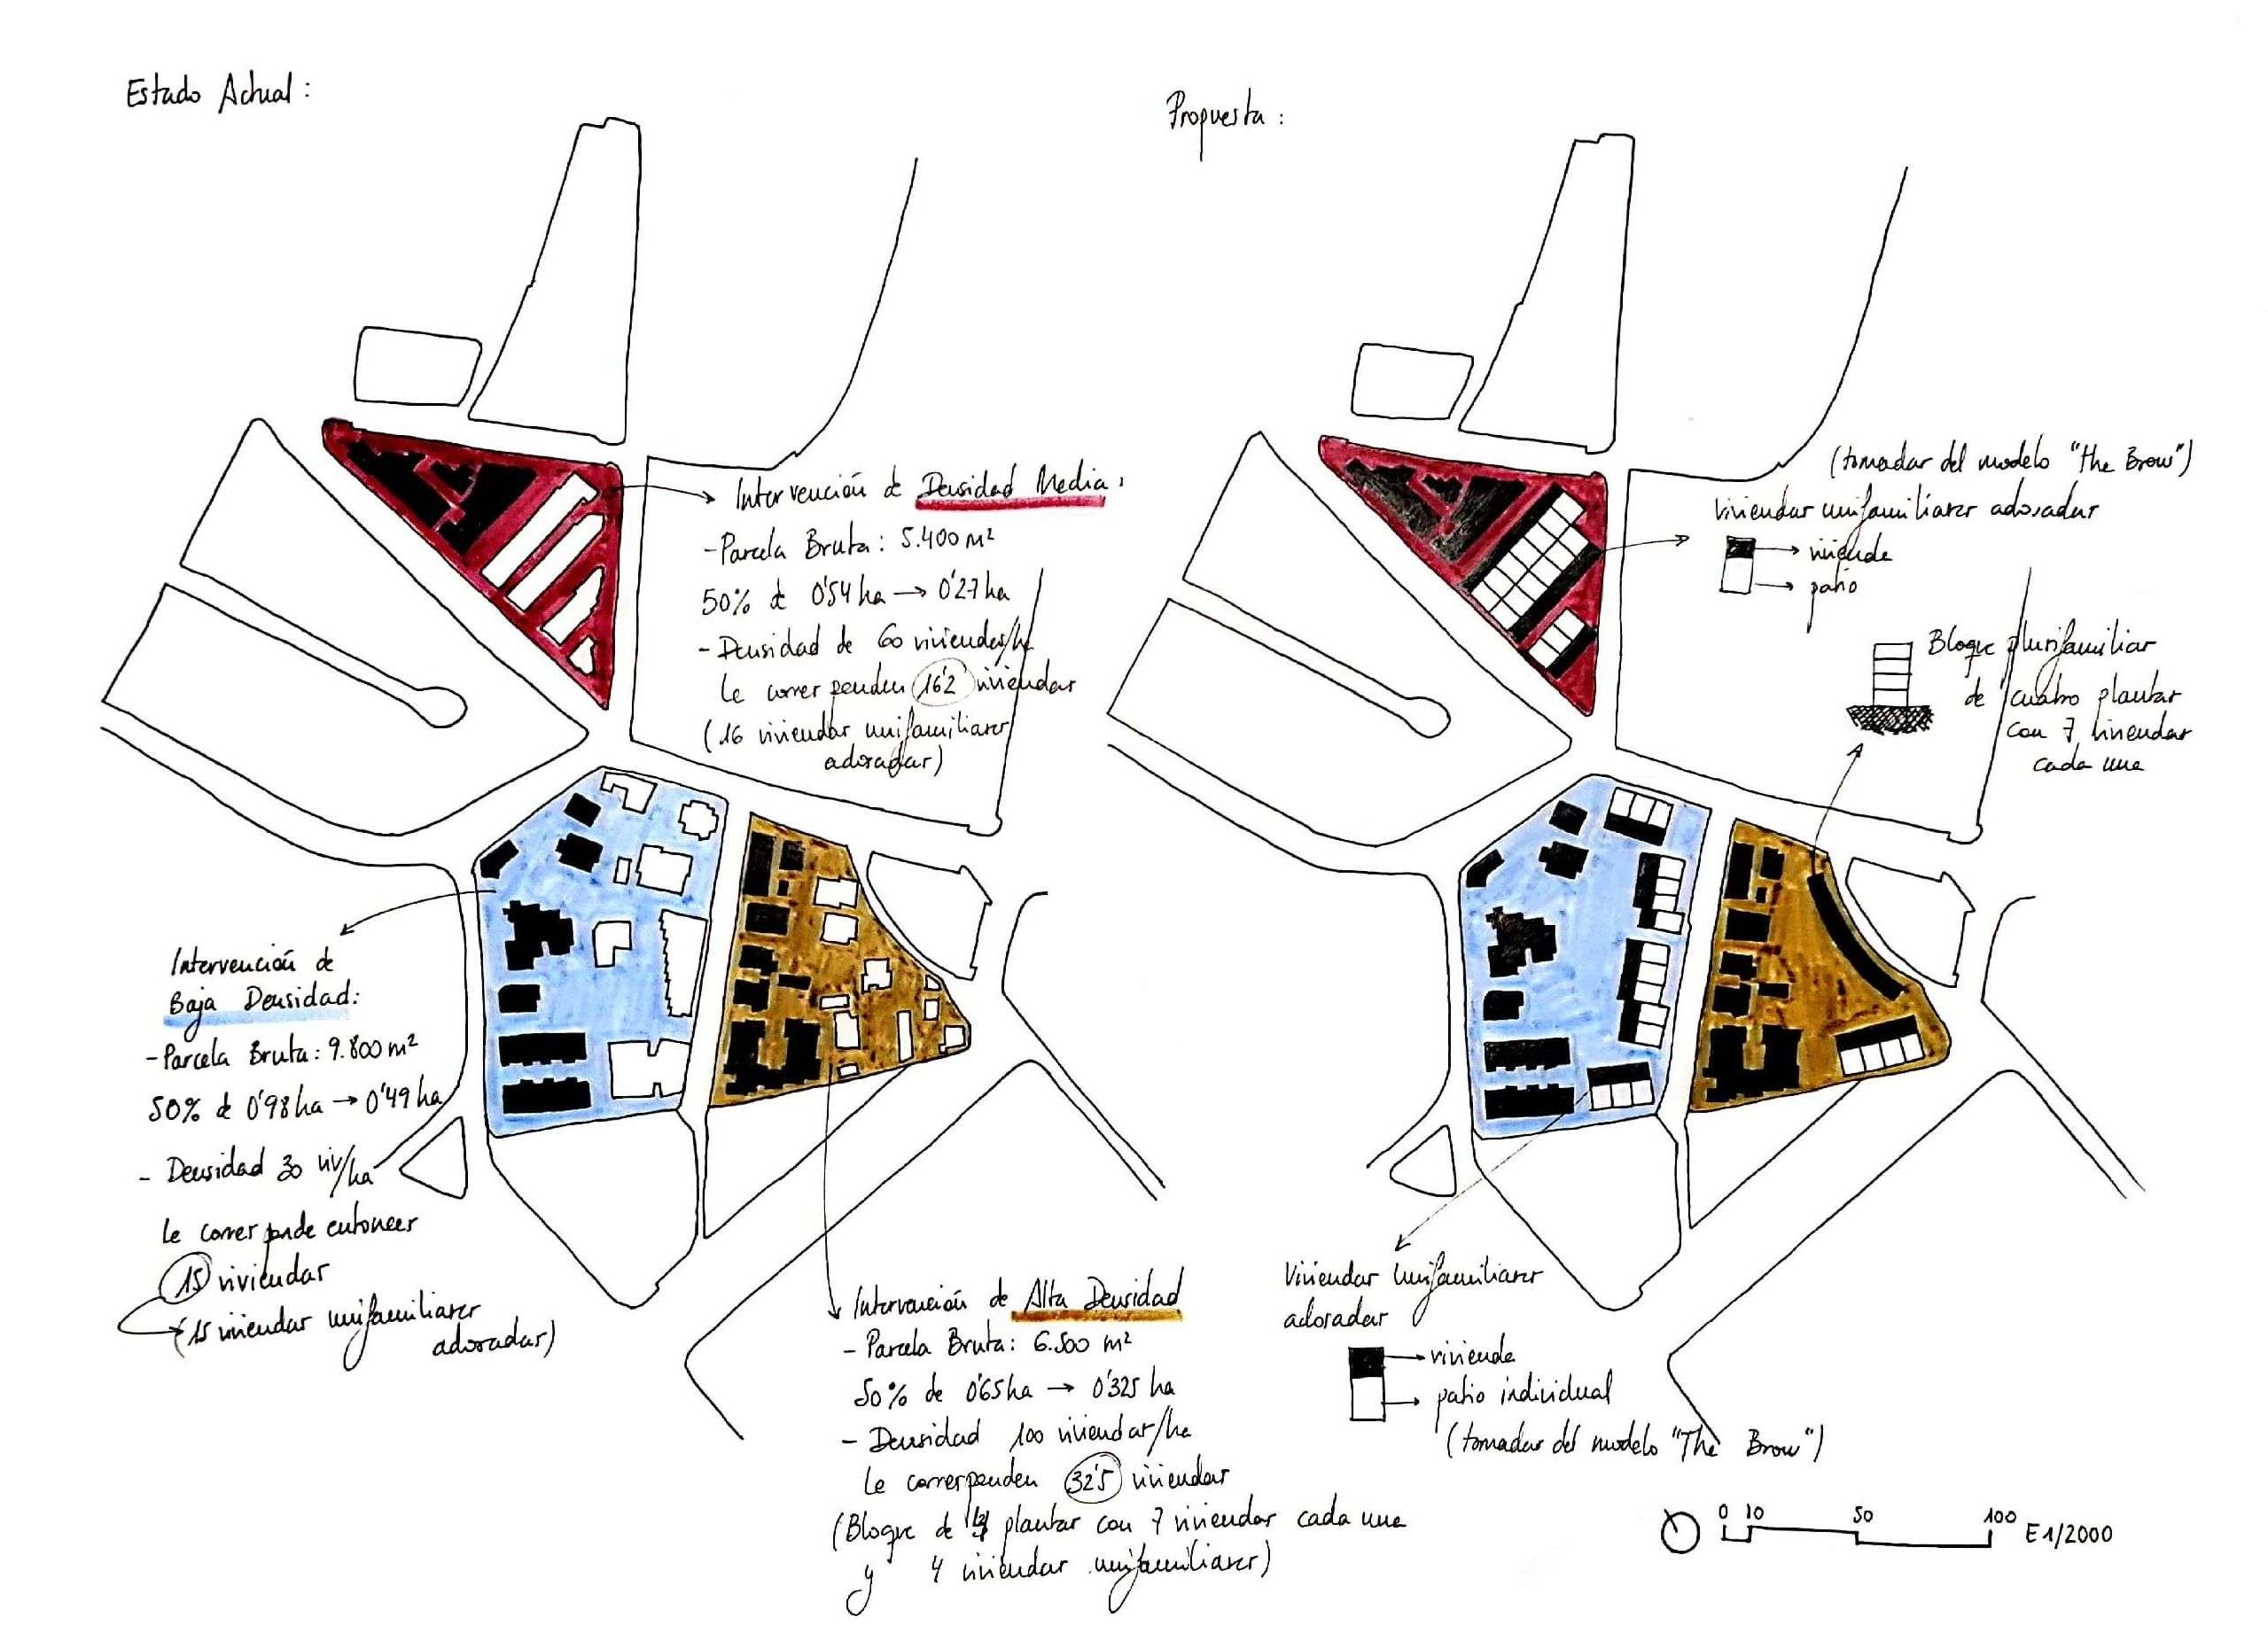 Estado Actual:
Intervención de Densidad Media:
- Parcela Bruta: 5.400 m²
50% de 0'54 ha → 0'27 ha
- Densidad de 60 viviendas/ha
Le corresponden 16'2 viviendas
(16 viviendas unifamiliares
adosadas)
Intervención de
Baja Densidad:
- Parcela Bruta: 9.800 m²
50% de 0'98 ha → 0'49 ha
- Densidad 30 viv/ha
Le corresponde entonces
15 viviendas
(15 viviendas unifamiliares
adosadas)
Intervención de Alta Densidad
- Parcela Bruta: 6.500 m²
50% de 0'65 ha → 0'325 ha
- Densidad 100 viviendas/ha
Le corresponden 32'5 viviendas
(Bloque de 4 plantas con 7 viviendas cada una
y 4 viviendas unifamiliares)
Propuesta:
(tomadas del modelo "the Brow")
viviendas unifamiliares adosadas
vivienda
patio
Bloque plurifamiliar
de cuatro plantas
con 7 viviendas
cada una
Viviendas Unifamiliares
adosadas
vivienda
patio individual
(tomadas del modelo "The Brow")
0 10 50 100 E 1/2000